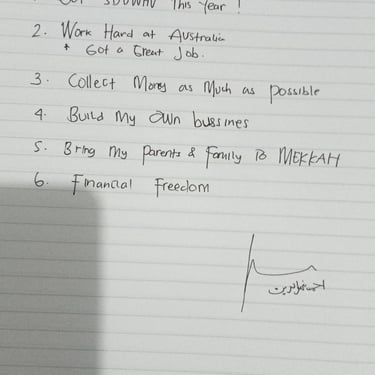 This Year !
2. Work Hard at Australia
* Got a Great Job.
3. Collect Money as Much as possible
4. Build My Own bussines
5. Bring My parents & Family to MEKKAH
6. Financial Freedom